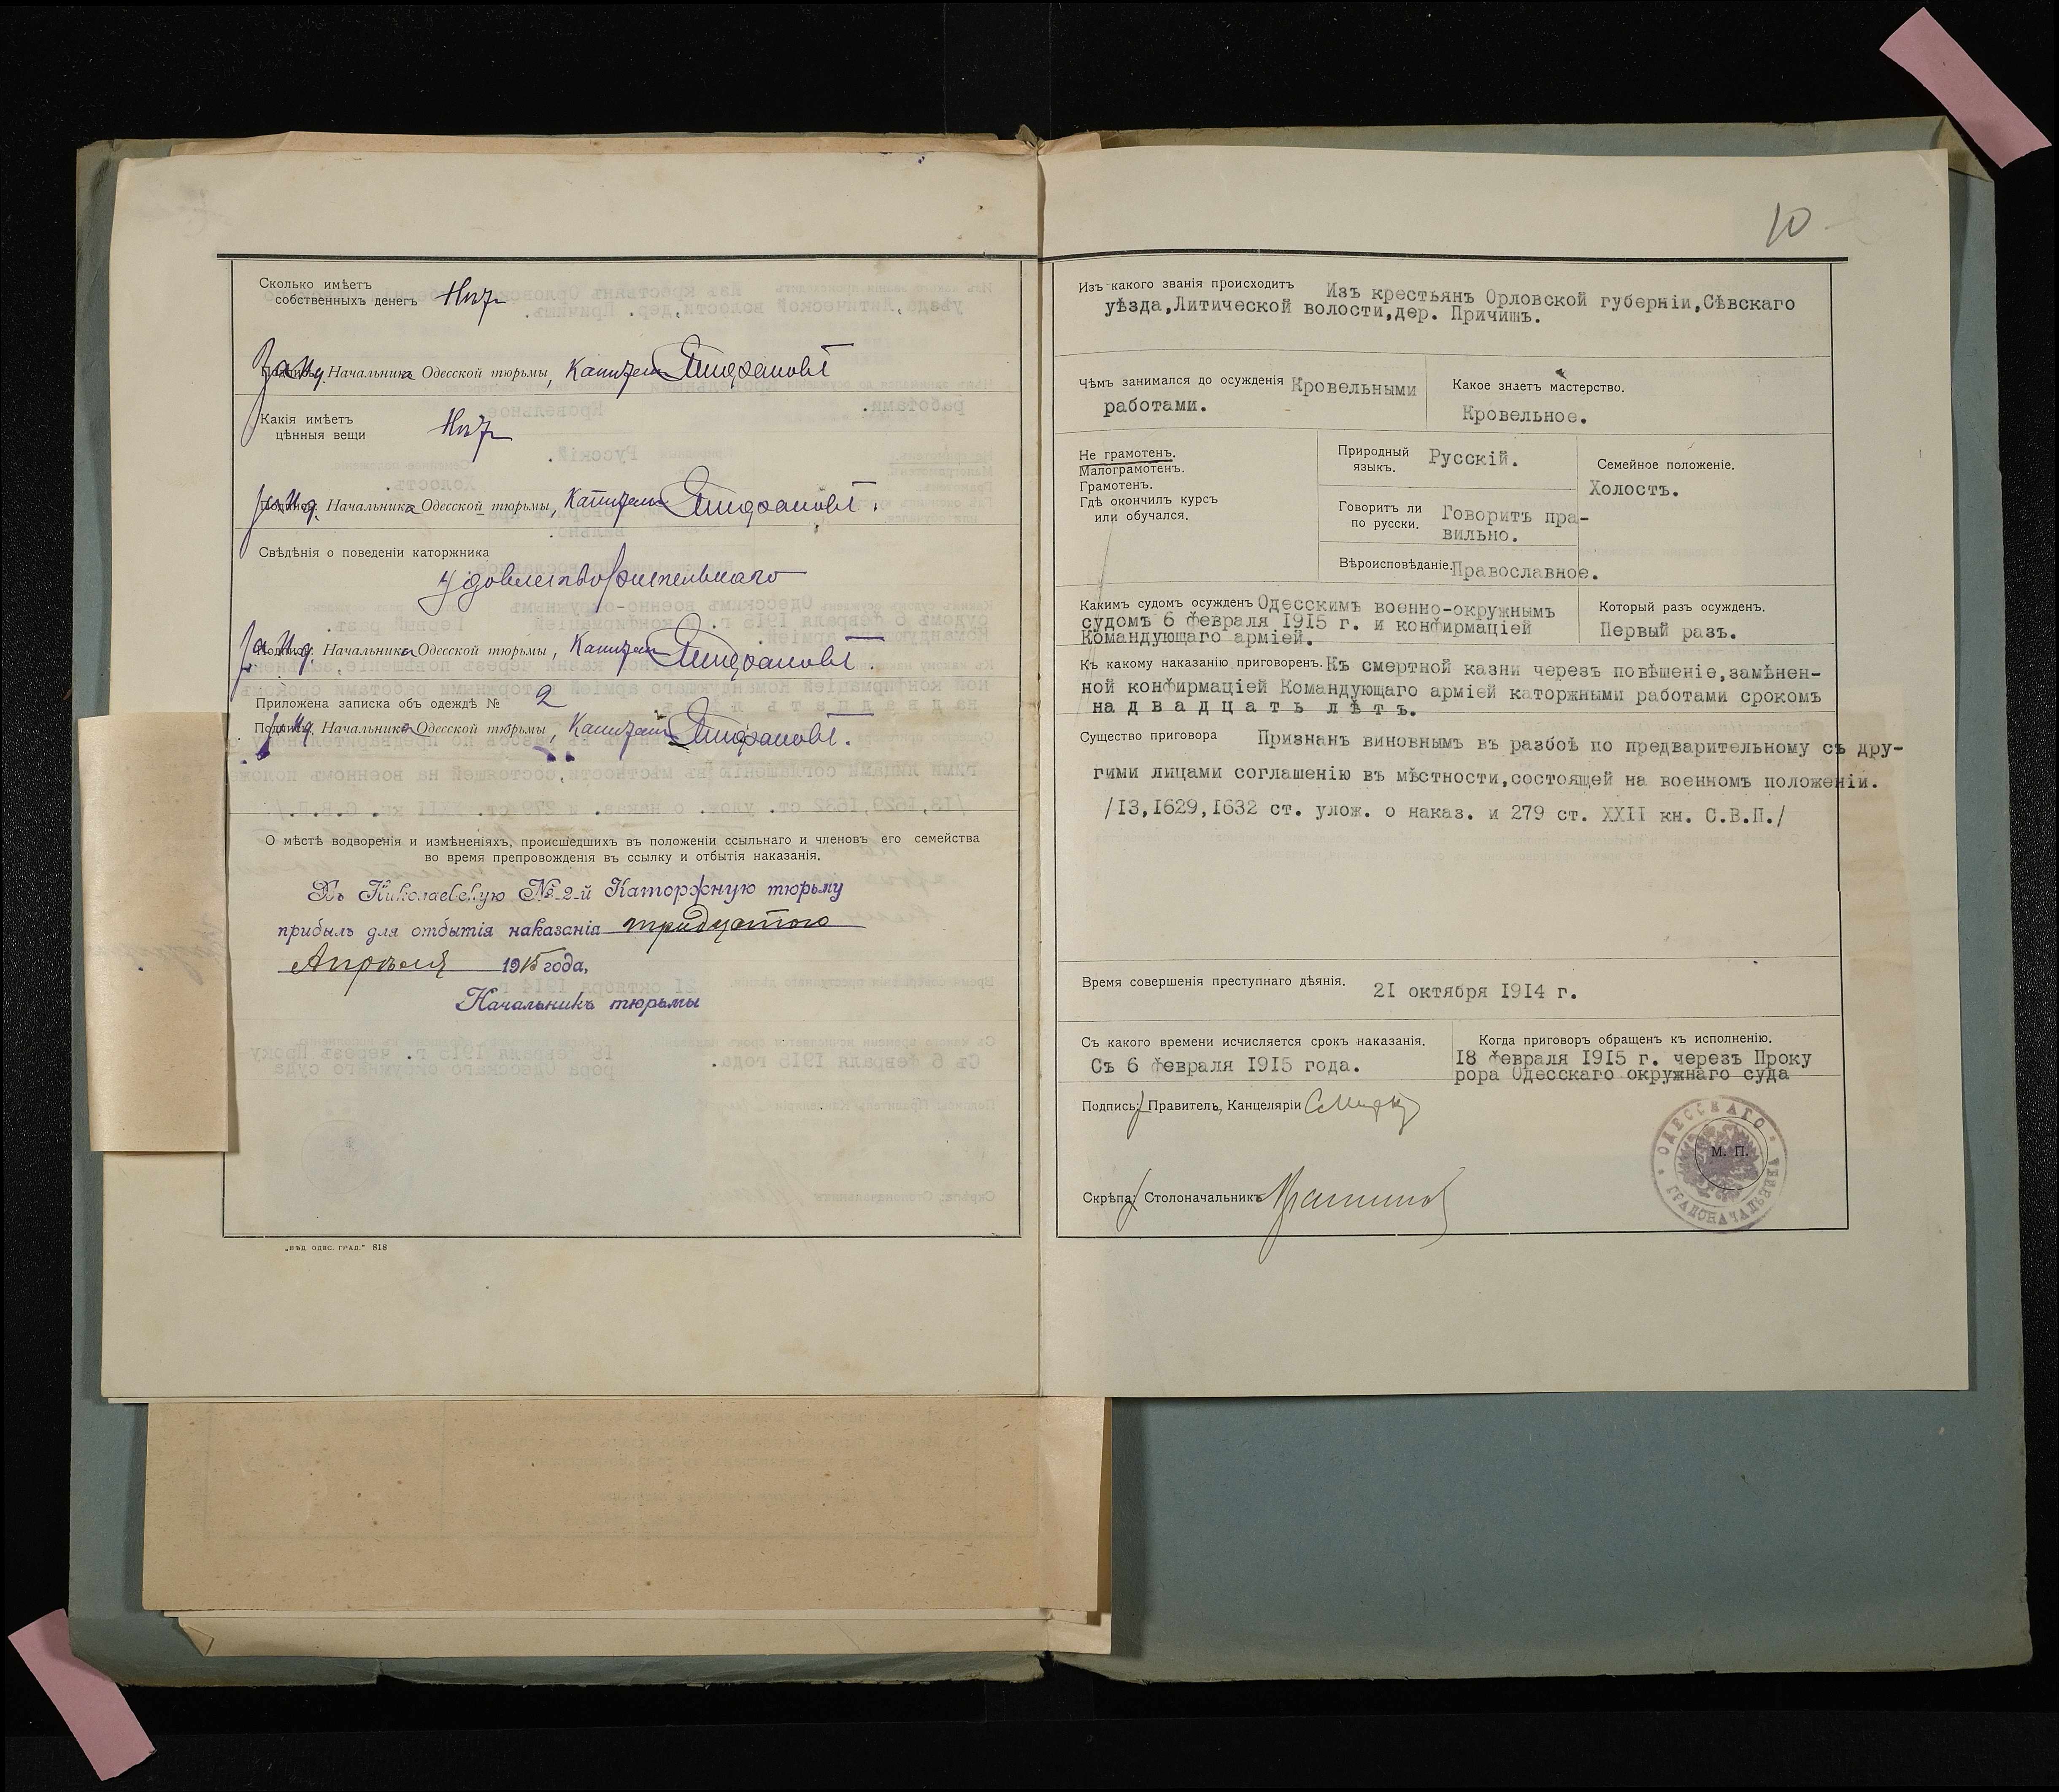 Сколько имѣетъ
собственныхъ денегъ Нѣтъ
За Нач. Начальника Одесской тюрьмы, Капитанъ
Какія имѣетъ
цѣнныя вещи Нѣтъ
Начальника Одесской тюрьмы, Капитанъ
Свѣдѣнія о поведеніи каторжника
Удовлетворительнаго
Начальника Одесской тюрьмы, Капитанъ
Приложена записка объ одеждѣ № 2
Начальника Одесской тюрьмы, Капитанъ
О мѣстѣ водворенія и измѣненіяхъ, происшедшихъ въ положеніи ссыльнаго и членовъ его семейства
во время препровожденія въ ссылку и отбытія наказанія.
Въ Николаевскую № 2-й Каторжную тюрьму
прибылъ для отбытія наказанія тридцатого
Апрѣля 1915 года,
Начальникъ тюрьмы
„ВѢД. ОДЕС. ГРАД.“ 818
10
Изъ какого званія происходитъ Изъ крестьянъ Орловской губерніи,Сѣвскаго
уѣзда,Литической волости,дер. Причишъ.
Чѣмъ занимался до осужденія Кровельными
работами.
Какое знаетъ мастерство.
Кровельное.
Не грамотенъ.
Малограмотенъ.
Грамотенъ.
Гдѣ окончилъ курсъ
или обучался.
Природный
языкъ. Русскій.
Говоритъ ли
по русски. Говоритъ пра-
вильно.
Вѣроисповѣданіе. Православное.
Семейное положеніе.
Холостъ.
Какимъ судомъ осужденъ Одесскимъ военно-окружнымъ
судомъ 6 февраля 1915 г. и конфирмаціей
Командующаго арміей.
Который разъ осужденъ.
Первый разъ.
Къ какому наказанію приговоренъ. Къ смертной казни черезъ повѣшеніе,замѣнен-
ной конфирмаціей Командующаго арміей каторжными работами срокомъ
на д в а д ц а т ь л ѣ т ъ.
Существо приговора Признанъ виновнымъ въ разбоѣ по предварительному съ дру-
гими лицами соглашенію въ мѣстности,состоящей на военномъ положеніи.
/13,1629,1632 ст. улож. о наказ. и 279 ст. XXII кн. С.В.П./
Время совершенія преступнаго дѣянія. 21 октября 1914 г.
Съ какого времени исчисляется срокъ наказанія.
Съ 6 февраля 1915 года.
Когда приговоръ обращенъ къ исполненію.
18 февраля 1915 г. черезъ Проку
рора Одесскаго окружнаго суда
Подпись: Правитель Канцеляріи
Скрѣпа: Столоначальникъ
М. П.
ОДЕССКАГО
ГРАДОНАЧАЛЬНИКА